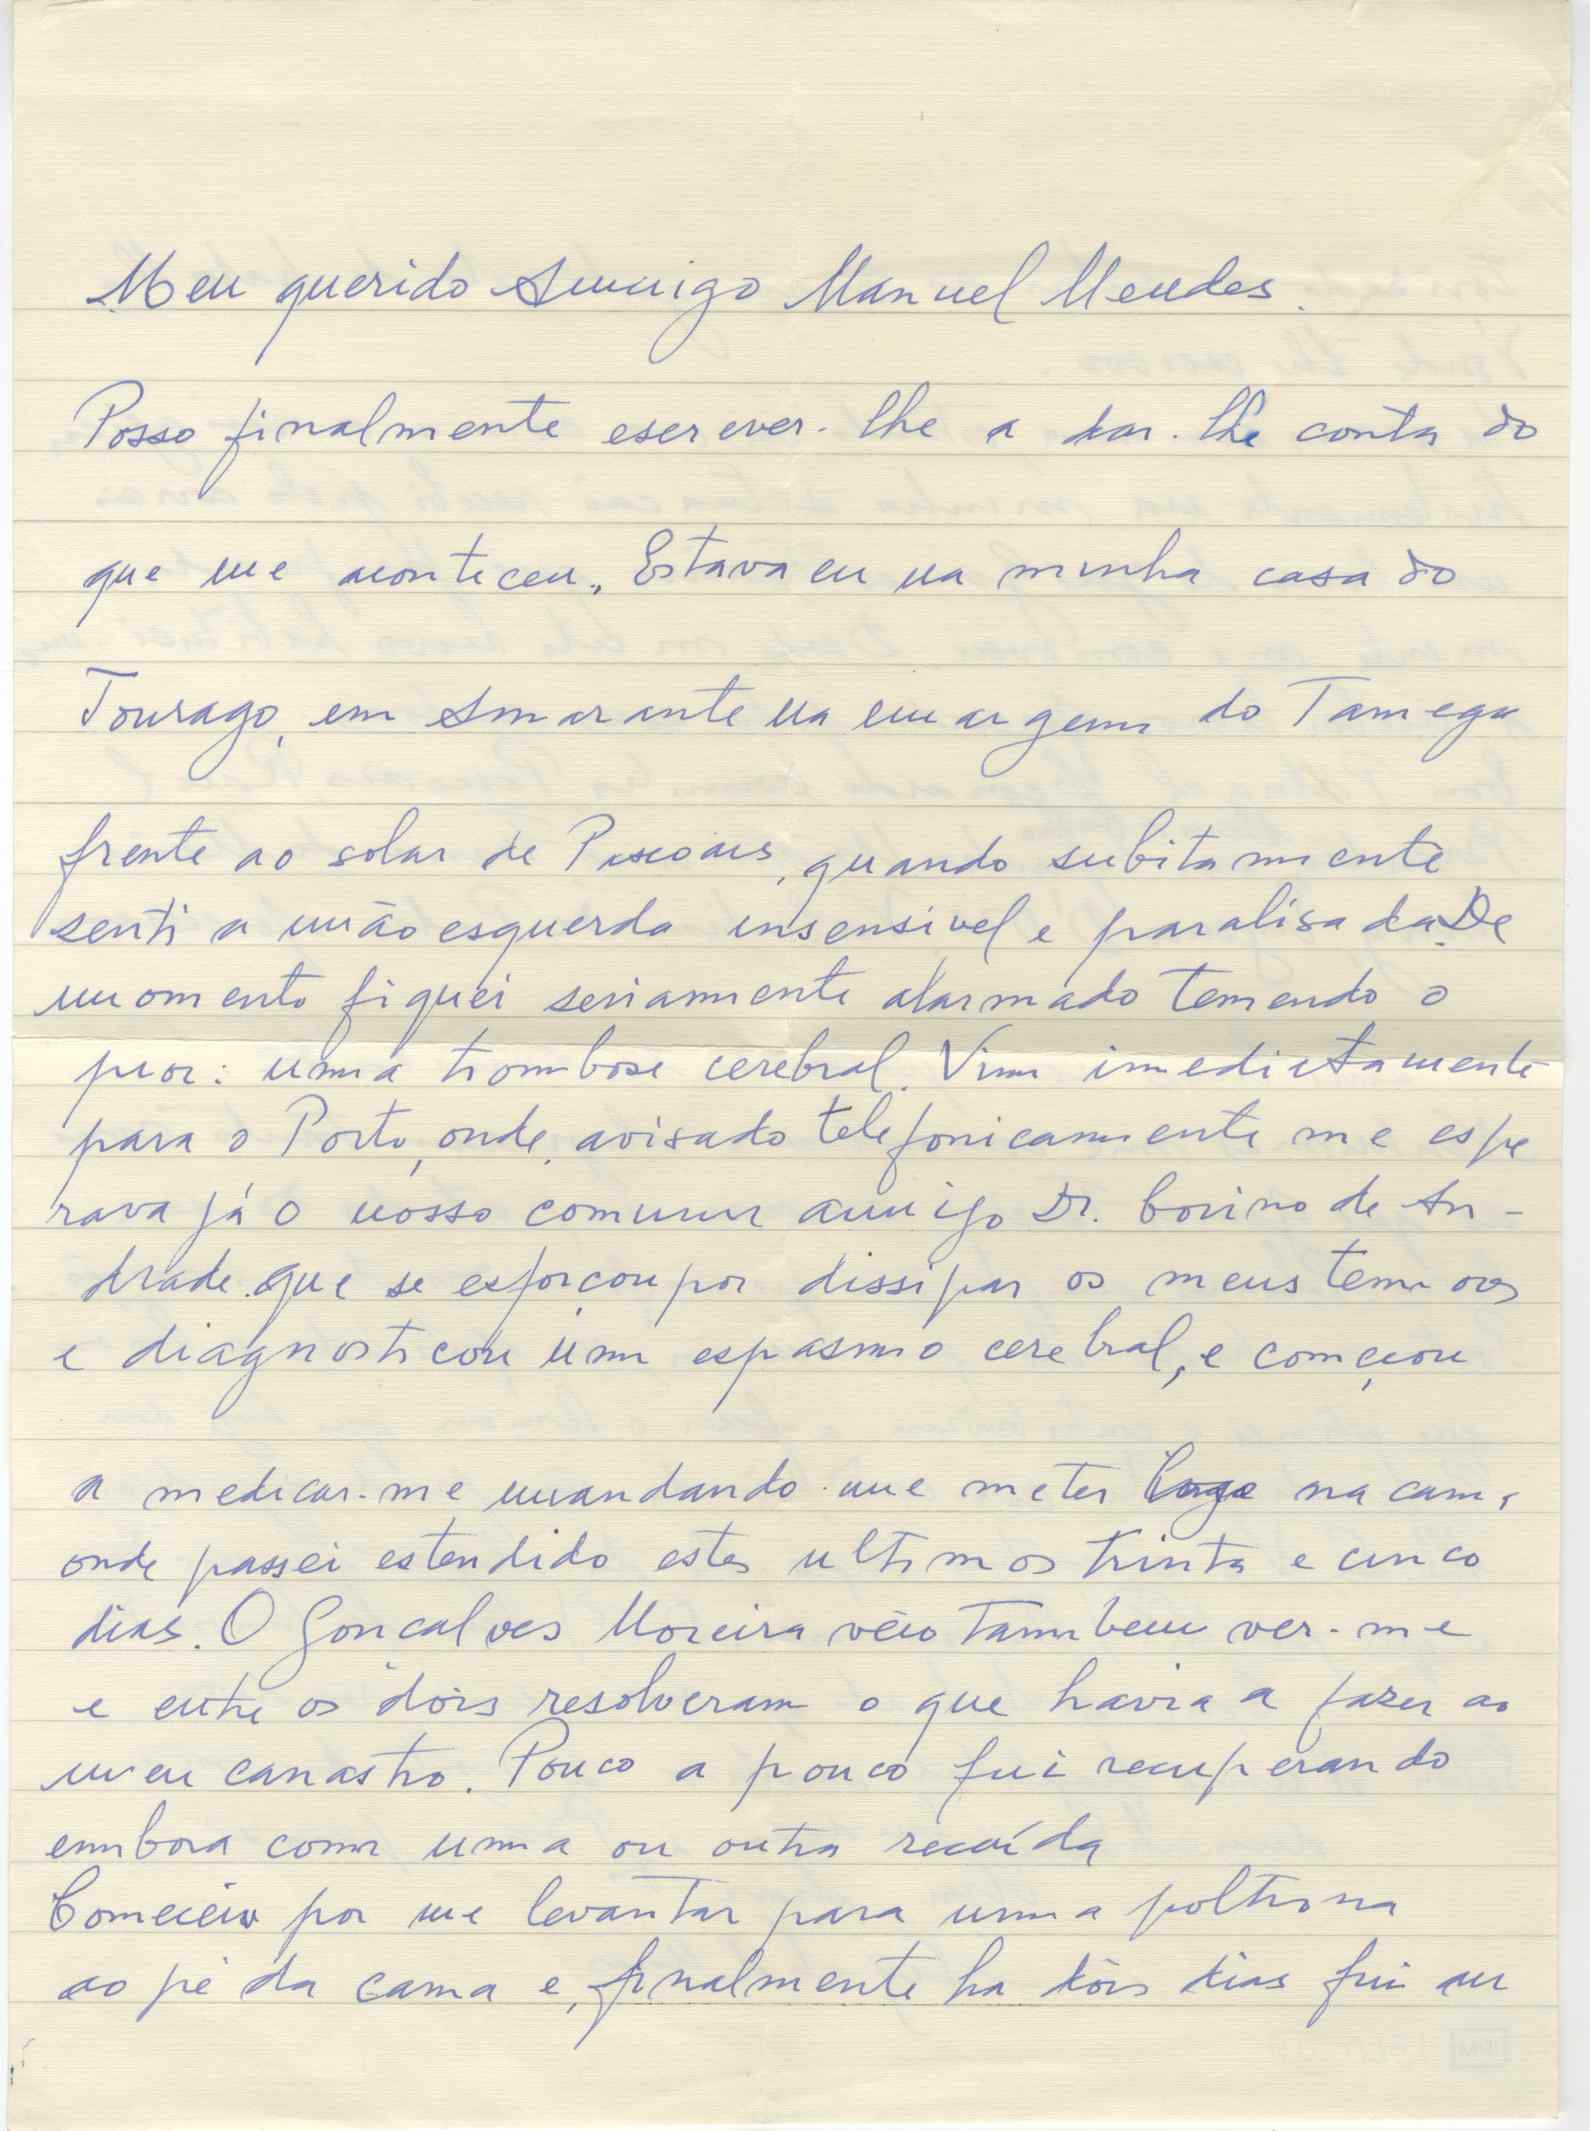 Meu querido Amigo Manuel Mendes.
Posso finalmente escrever-lhe a dar-lhe conta do
que me aconteceu. Estava eu na minha casa do
Tourago, em Amarante na margem do Tamega
frente ao solar de Pascoais, quando subitamente
senti a mão esquerda insensivel e paralisada. De
momento fiquei seriamente alarmado temendo o
pior: uma trombose cerebral. Vim imediatamente
para o Porto, onde, avisado telefonicamente me espe
rava já o nosso comum amigo Dr. Corino de An-
drade que se esforçou por dissipar os meus temores
e diagnosticou um espasmo cerebral, e começou
a medicar-me mandando-me meter logo na cama,
onde passei estendido estes ultimos trinta e cinco
dias. O Gonçalves Moreira veio tambem ver-me
e entre os dois resolveram o que havia a fazer ao
meu canastro. Pouco a pouco fui recuperando
embora com uma ou outra recaída
Comecei por me levantar para uma poltrona
ao pé da cama e, finalmente ha dois dias fui au